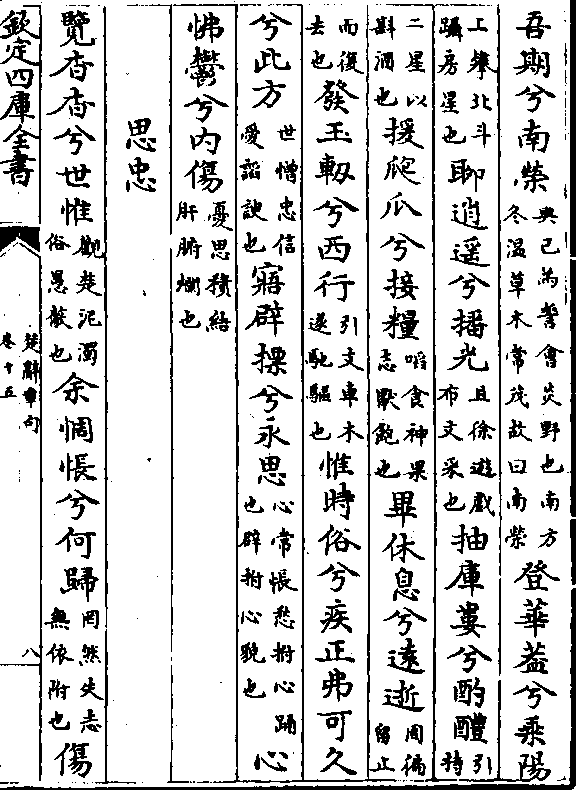 吾期兮南榮與己為誓會炎野也南方冬溫草木常茂故曰南榮登華蓋兮乘陽
上攀北斗躡房星也聊逍遥兮播光且徐遊戲布文采也抽庫婁兮酌醴引持
二星以斟酒也援爬瓜兮接糧啗食神果志猒飽也畢休息兮遠逝周徧留止
而復去也發玉軔兮西行引支車木遂馳驅也惟時俗兮疾正弗可久
兮此方世憎忠信愛諂諛也寤辟摽兮永思心常悵愁拊心踊也辟拊心貌也心
怫鬱兮内傷憂思積結肝腑爛也
思忠
覽杳杳兮世惟觀楚泥濁俗愚蔽也余惆悵兮何歸罔然失志無依附也傷
欽定四庫全書
楚辭章句
卷十五
八